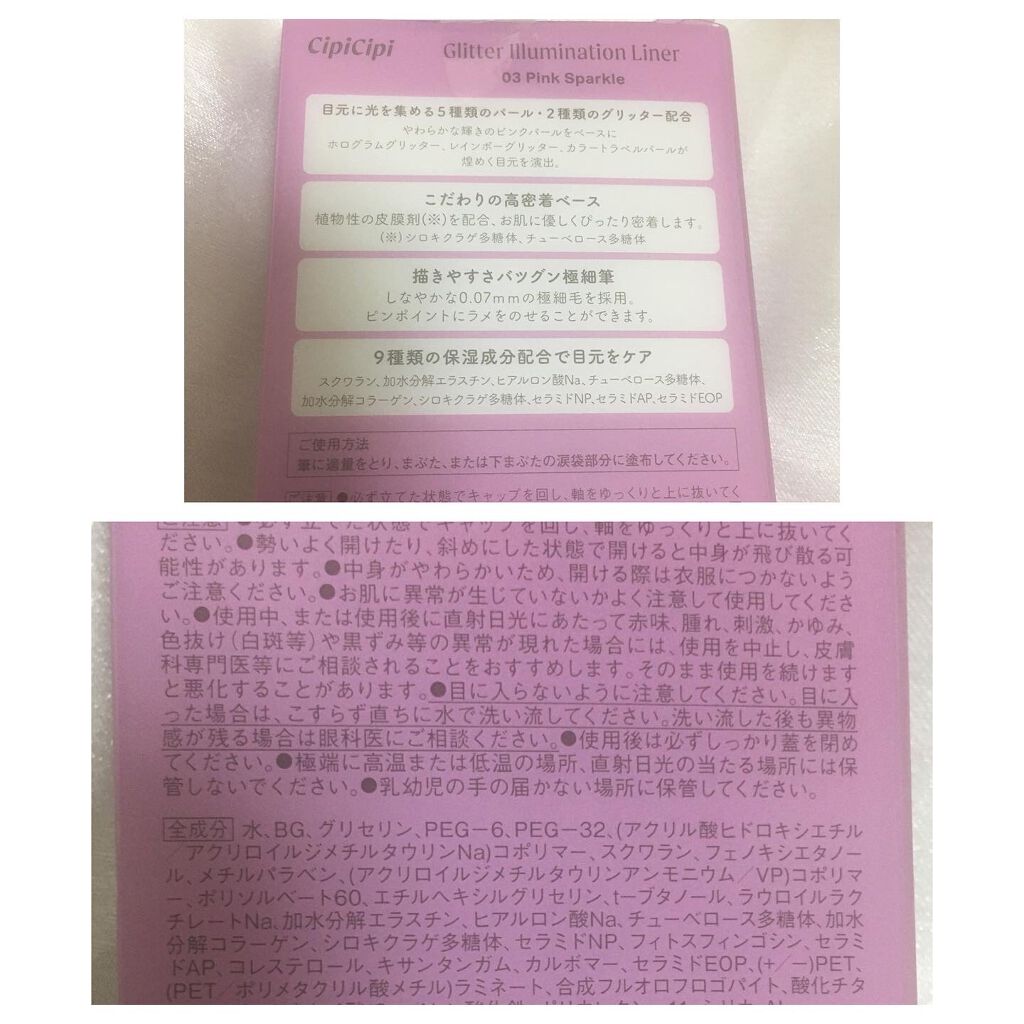 CipiCipi Glitter Illumination Liner
03 Pink Sparkle
目元に光を集める5種類のパール・2種類のグリッター配合
やわらかな輝きのピンクパールをベースに
ホログラムグリッター、レインボーグリッター、カラートラベルパールが
煌めく目元を演出。
こだわりの高密着ベース
植物性の皮膜剤(※)を配合、お肌に優しくぴったり密着します。
(※)シロキクラゲ多糖体、チューベロース多糖体
描きやすさバツグン極細筆
しなやかな0.07mmの極細毛を採用。
ピンポイントにラメをのせることができます。
9種類の保湿成分配合で目元をケア
スクワラン、加水分解エラスチン、ヒアルロン酸Na、チューベロース多糖体、
加水分解コラーゲン、シロキクラゲ多糖体、セラミドNP、セラミドAP、セラミドEOP
ご使用方法
筆に適量をとり、まぶた、または下まぶたの涙袋部分に塗布してください。
ご注意 ●必ず立てた状態でキャップを回し、軸をゆっくりと上に抜いてく
ご注意 ●必ず立てた状態でキャップを回し、軸をゆっくりと上に抜いてく
ださい。●勢いよく開けたり、斜めにした状態で開けると中身が飛び散る可
能性があります。●中身がやわらかいため、開ける際は衣服につかないよう
ご注意ください。●お肌に異常が生じていないかよく注意して使用してくださ
い。●使用中、または使用後に直射日光にあたって赤味、腫れ、刺激、かゆみ、
色抜け(白斑等)や黒ずみ等の異常が現れた場合には、使用を中止し、皮膚
科専門医等にご相談されることをおすすめします。そのまま使用を続けます
と悪化することがあります。●目に入らないように注意してください。目に入
った場合は、こすらず直ちに水で洗い流してください。洗い流した後も異物
感が残る場合は眼科医にご相談ください。●使用後は必ずしっかり蓋を閉め
てください。●極端に高温または低温の場所、直射日光の当たる場所には保
管しないでください。●乳幼児の手の届かない場所に保管してください。
全成分 水、BG、グリセリン、PEG-6、PEG-32、(アクリル酸ヒドロキシエチル
/アクリロイルジメチルタウリンNa)コポリマー、スクワラン、フェノキシエタノー
ル、メチルパラベン、(アクリロイルジメチルタウリンアンモニウム/VP)コポリマ
ー、ポリソルベート60、エチルヘキシルグリセリン、t-ブタノール、ラウロイルラク
チレートNa、加水分解エラスチン、ヒアルロン酸Na、チューベロース多糖体、加水
分解コラーゲン、シロキクラゲ多糖体、セラミドNP、フィトスフィンゴシン、セラミ
ドAP、コレステロール、キサンタンガム、カルボマー、セラミドEOP、(+/-)PET、
(PET/ポリメタクリル酸メチル)ラミネート、合成フルオロフロゴパイト、酸化チタ